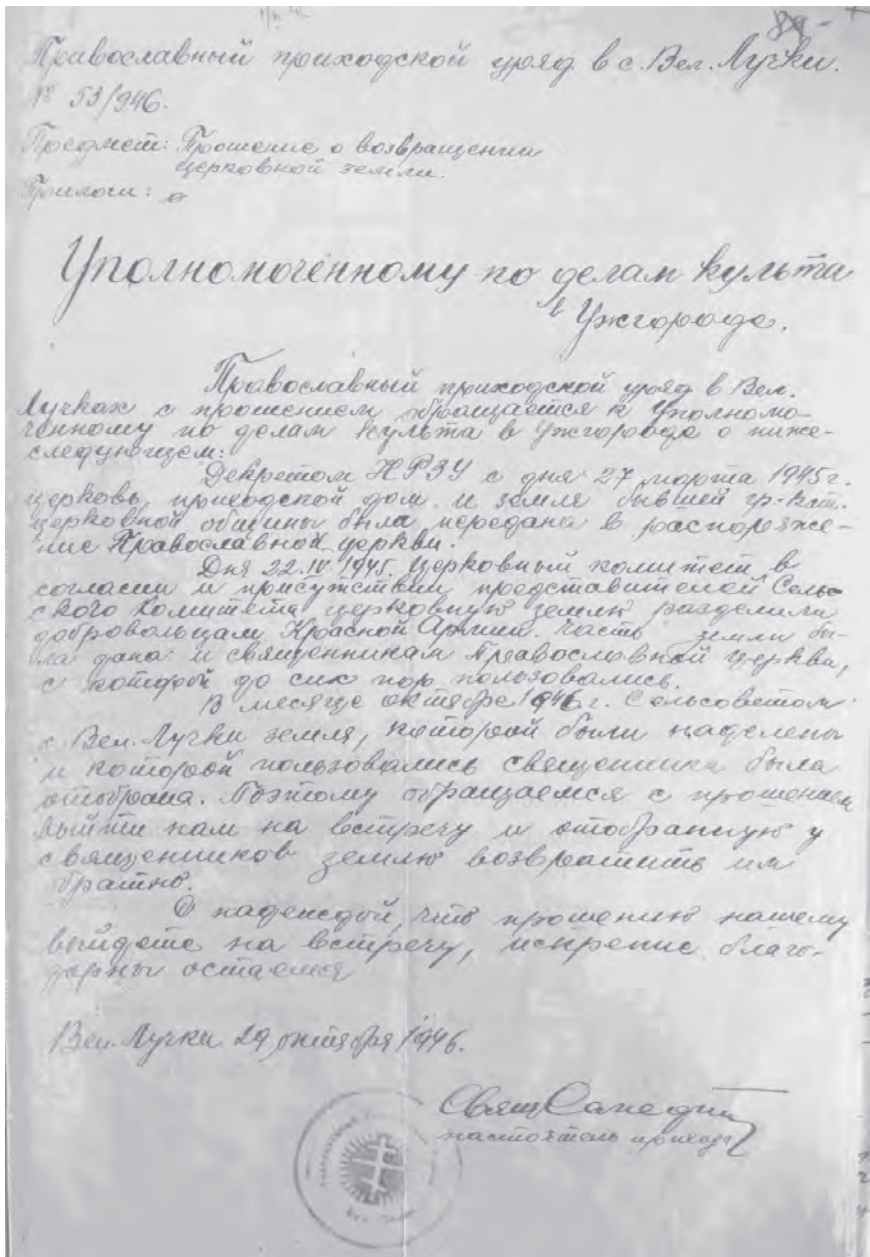 89
Православный приходской уряд в с. Вел. Лучки.
№ 53/946.
Предмет: Прошение о возвращении
церковной земли.
Прилоги: 0
Уполномоченному по делам культа
в Ужгороде.
Православный приходской уряд в Вел.
Лучках с прошением обращается к Уполномо-
ченному по делам культа в Ужгороде о ниже-
следующем:
Декретом НРЗУ с дня 27 марта 1945 г.
церковь, приходской дом и земле бывшей гр-кат.
церковной общины была передана в распоряже-
ние Православной церкви.
Дня 22.IV 1945. Церковный комитет в
согласии и присутствии представителей Сель-
ского Комитета церковную землю разделили
добровольцам Красной Армии. Часть земли бы-
ла дана и священникам Православной церкви,
с которой до сих пор пользовались.
В месяце октябре 1946 г. Сельсоветом
с. Вел. Лучки земля, которой были наделены
и которой пользовались священники была
отобрана. Поэтому обращаемся с прошением
выйти нам на встречу и отобранную у
священников землю возвратить им
обратно.
С надеждой, что прошению нашему
выйдете на встречу, искренне благо-
дарны остаемся
Вел. Лучки 29 октября 1946.
Свящ
настоятель прихода